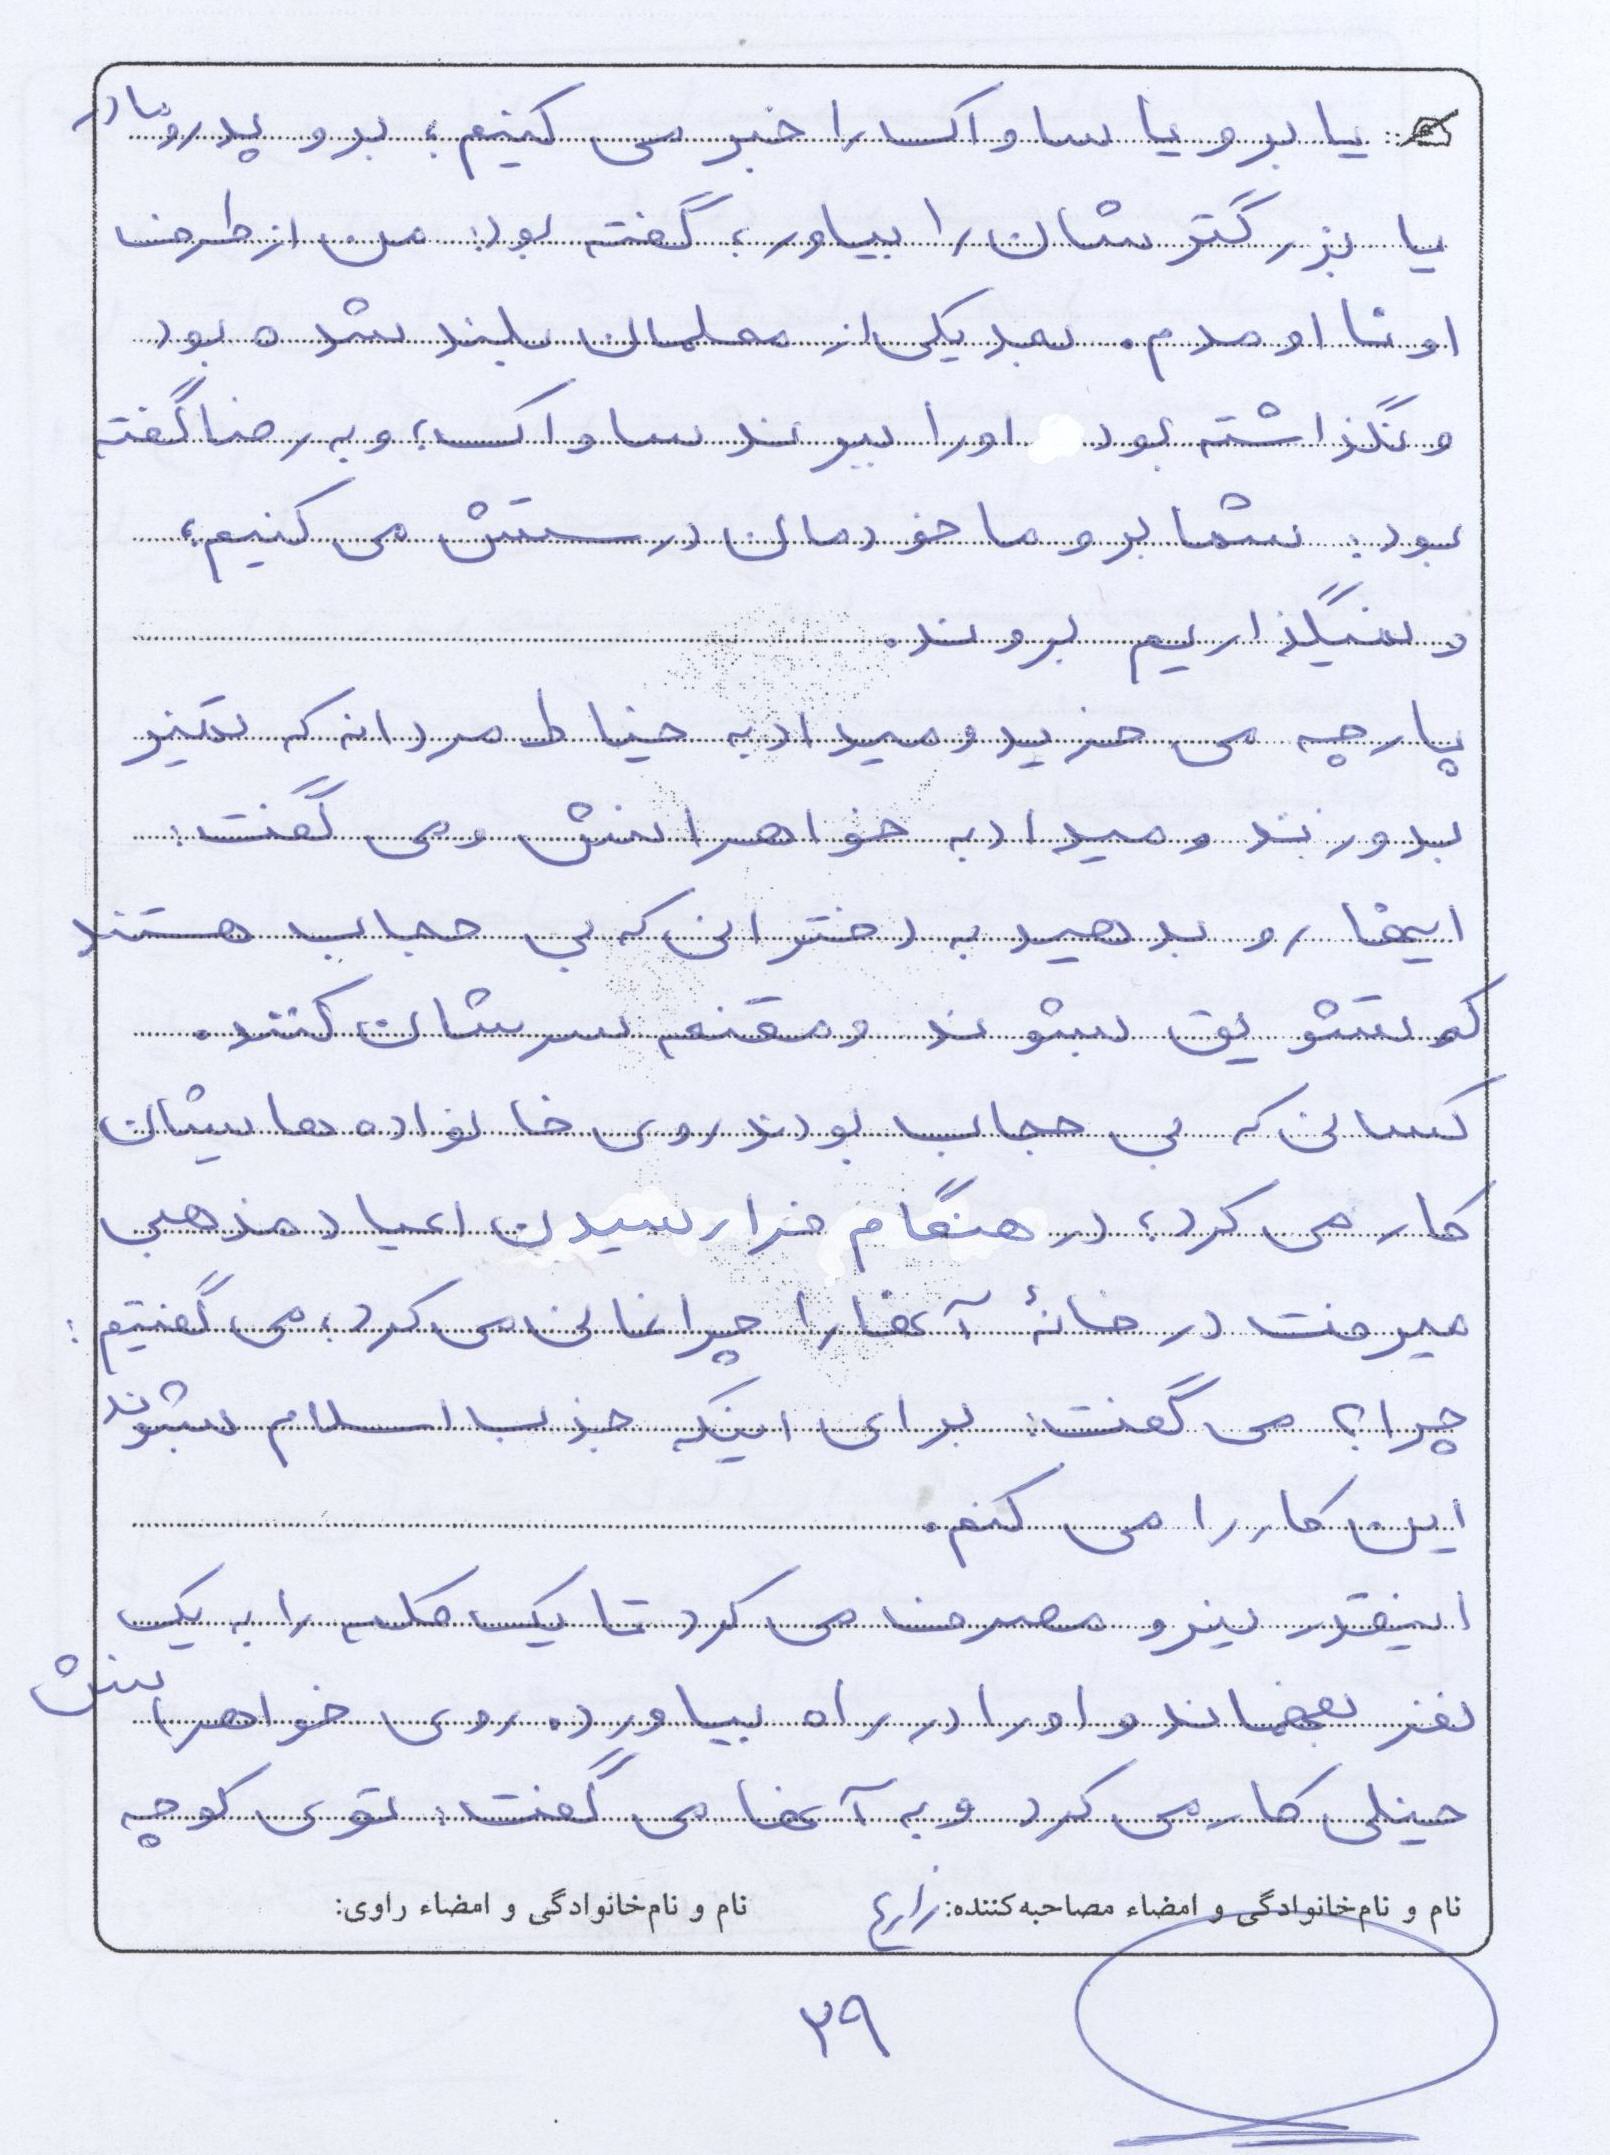 یا برو یا ساواک را خبر می کنیم؛ برو پدر و مادر
یا بزرگترشان را بیاور؛ گفته بود: من از طرف
اونا اومدم. بعد یکی از معلمان بلند شده بود
و نگذاشته بود او را ببرند ساواک؛ و به رضا گفته
بود: شما برو ما خودمان درستش می کنیم؛
و نمیگذاریم بروند.
پارچه می خرید و میداد به خیاط مردانه که تمیز
بدوزند و میداد به خواهرانش و می گفت:
اینها رو بدهید به دخترانی که بی حجاب هستند
که تشویق بشوند و مقنعه سرشان کنند.
کسانی که بی حجاب بودند روی خانواده هایشان
کار می کرد؛ در هنگام فرا رسیدن اعیاد مذهبی
میرفت در خانهٔ آنها را چراغانی می کرد؛ می گفتیم:
چرا؟ می گفت: برای اینکه جذب اسلام بشوند
این کار را می کنم.
اینقدر نیرو مصرف می کرد تا یک کلمه را به یک
نفر بفهماند و او را در راه بیاورد. روی خواهرانش
خیلی کار می کرد و به آنها می گفت: توی کوچه
نام و نام‌خانوادگی و امضاء مصاحبه‌کننده: زارع نام و نام‌خانوادگی و امضاء راوی:
۲۹